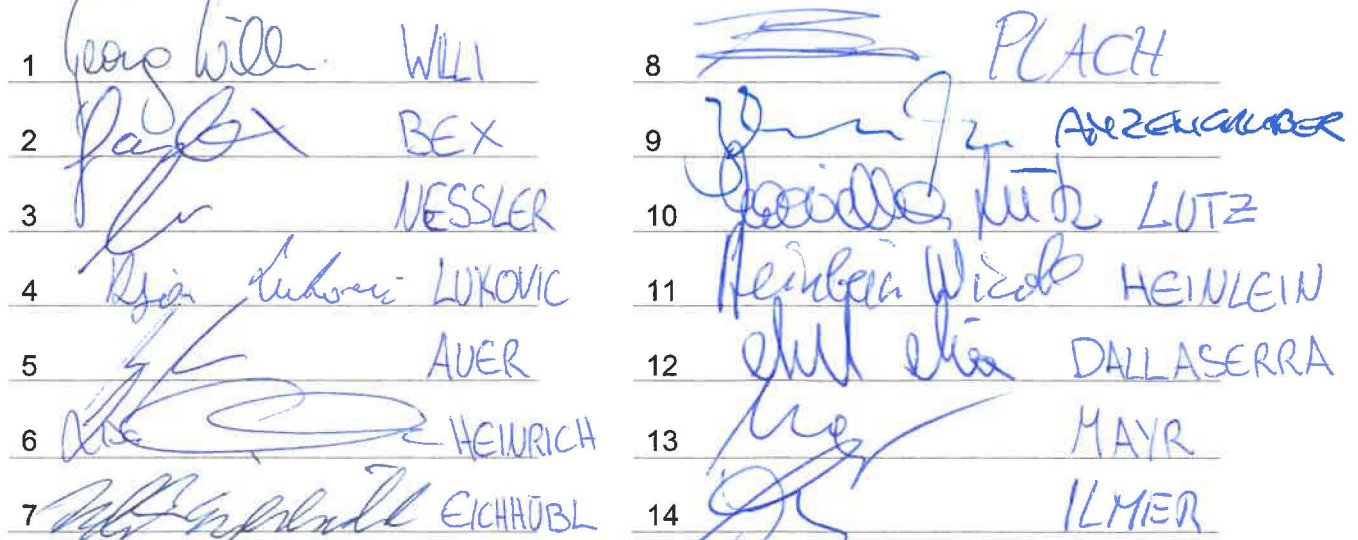 1 Georg Willi WILLI
2 BEX
3 NESSLER
4 Lukovic LUKOVIC
5 AUER
6 Lisa HEINRICH
7 EICHHÜBL
8 PLACH
9 ANZENGRUBER
10 Lutz LUTZ
11 Heinlein Nicole HEINLEIN
12 DALLASERRA
13 MAYR
14 ILMER